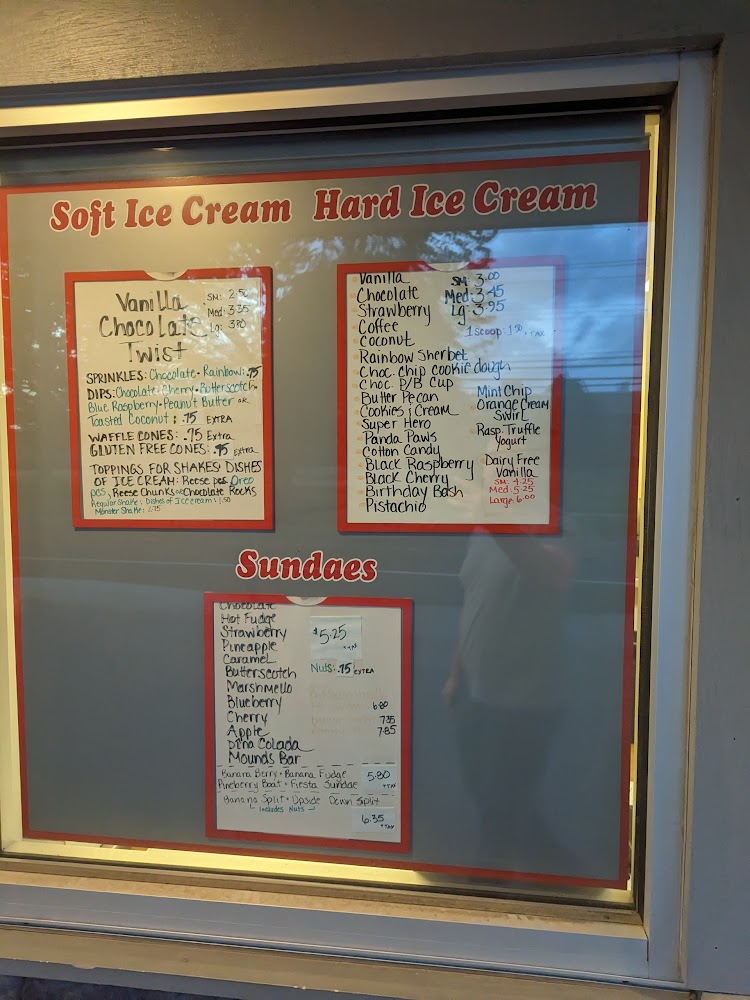 Soft Ice Cream
Vanilla
Chocolate
Twist
SM: 2.50
Med: 3.35
Lg: 3.80
SPRINKLES: Chocolate • Rainbow: .75
DIPS: Chocolate • Cherry • Butterscotch •
Blue Raspberry • Peanut Butter or
Toasted Coconut: .75 EXTRA
WAFFLE CONES: .75 Extra
GLUTEN FREE CONES: .75 Extra
TOPPINGS FOR SHAKES, DISHES
OF ICE CREAM: Reese pcs, Oreo
pcs, Reese Chunks or Chocolate Rocks
Regular Shake, Dishes of Ice cream: 1.50
Monster Shake:
Hard Ice Cream
Vanilla
Chocolate
Strawberry
Coffee
Coconut
Rainbow Sherbet
Choc. chip cookie dough
Choc. P/B Cup
Butter Pecan
Cookies & Cream
Super Hero
Panda Paws
Cotton Candy
Black Raspberry
Black Cherry
Birthday Bash
Pistachio
SM: 3.00
Med: 3.45
Lg: 3.95
1 scoop: 1.50 + TAX
Mint Chip
Orange Cream
Swirl
Rasp. Truffle
Yogurt
Dairy Free
Vanilla
SM: 4.25
Med: 5.25
Large: 6.00
Sundaes
Chocolate
Hot Fudge
Strawberry
Pineapple
Caramel
Butterscotch
Marshmello
Blueberry
Cherry
Apple
Piña Colada
Mounds Bar
$5.25
+TAX
Nuts: .75 EXTRA
6.80
7.35
7.85
Banana Berry • Banana Fudge
Pineberry Boat • Fiesta Sundae
5.80
+TAX
Banana Split • Upside Down Split
Includes Nuts
6.35
+TAX